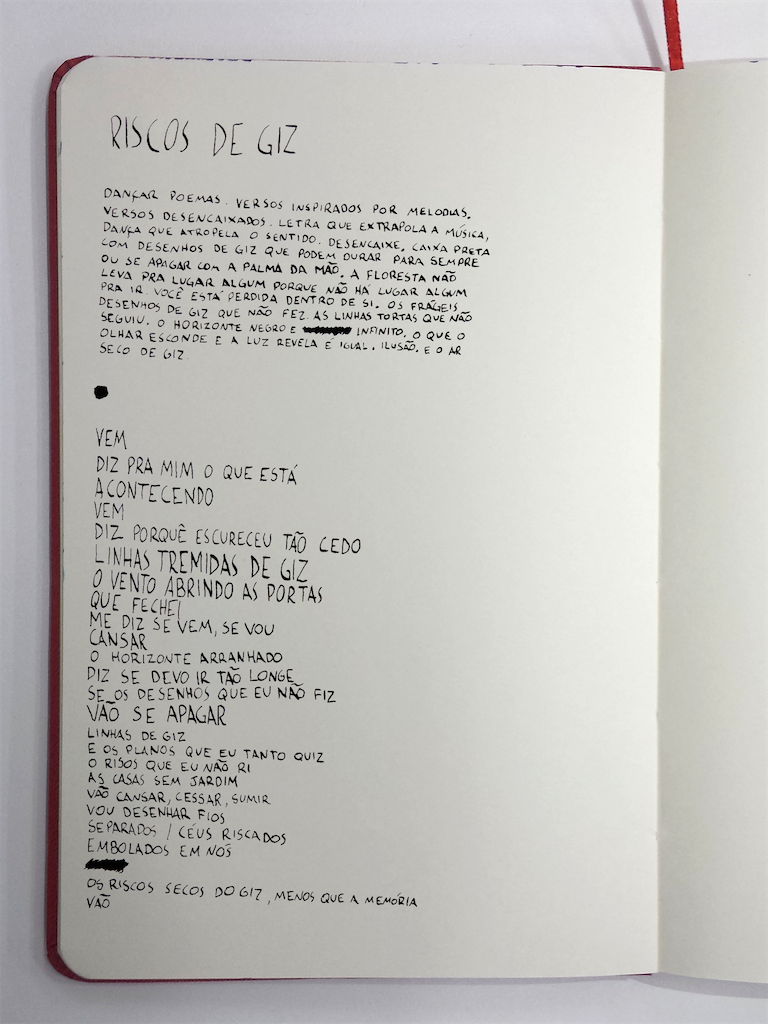 RISCOS DE GIZ
DANÇAR POEMAS. VERSOS INSPIRADOS POR MELODIAS.
VERSOS DESENCAIXADOS. LETRA QUE EXTRAPOLA A MÚSICA,
DANÇA QUE ATROPELA O SENTIDO. DESENCAIXE. CAIXA PRETA
COM DESENHOS DE GIZ QUE PODEM DURAR PARA SEMPRE
OU SE APAGAR COM A PALMA DA MÃO. A FLORESTA NÃO
LEVA PRA LUGAR ALGUM PORQUE NÃO HÁ LUGAR ALGUM
PRA IR. VOCÊ ESTÁ PERDIDA DENTRO DE SI. OS FRÁGEIS
DESENHOS DE GIZ QUE NÃO FEZ. AS LINHAS TORTAS QUE NÃO
SEGUIU. O HORIZONTE NEGRO E INFINITO. O QUE O
OLHAR ESCONDE E A LUZ REVELA É IGUAL. ILUSÃO. E O AR
SECO DE GIZ.
VEM
DIZ PRA MIM O QUE ESTÁ
ACONTECENDO
VEM
DIZ PORQUÊ ESCURECEU TÃO CEDO
LINHAS TREMIDAS DE GIZ
O VENTO ABRINDO AS PORTAS
QUE FECHEI
ME DIZ SE VEM, SE VOU
CANSAR
O HORIZONTE ARRANHADO
DIZ SE DEVO IR TÃO LONGE
SE OS DESENHOS QUE EU NÃO FIZ
VÃO SE APAGAR
LINHAS DE GIZ
E OS PLANOS QUE EU TANTO QUIZ
O RISOS QUE EU NÃO RI
AS CASAS SEM JARDIM
VÃO CANSAR, CESSAR, SUMIR
VOU DESENHAR FIOS
SEPARADOS / CÉUS RISCADOS
EMBOLADOS EM NÓS
OS RISCOS SECOS DO GIZ, MENOS QUE A MEMÓRIA
VÃO